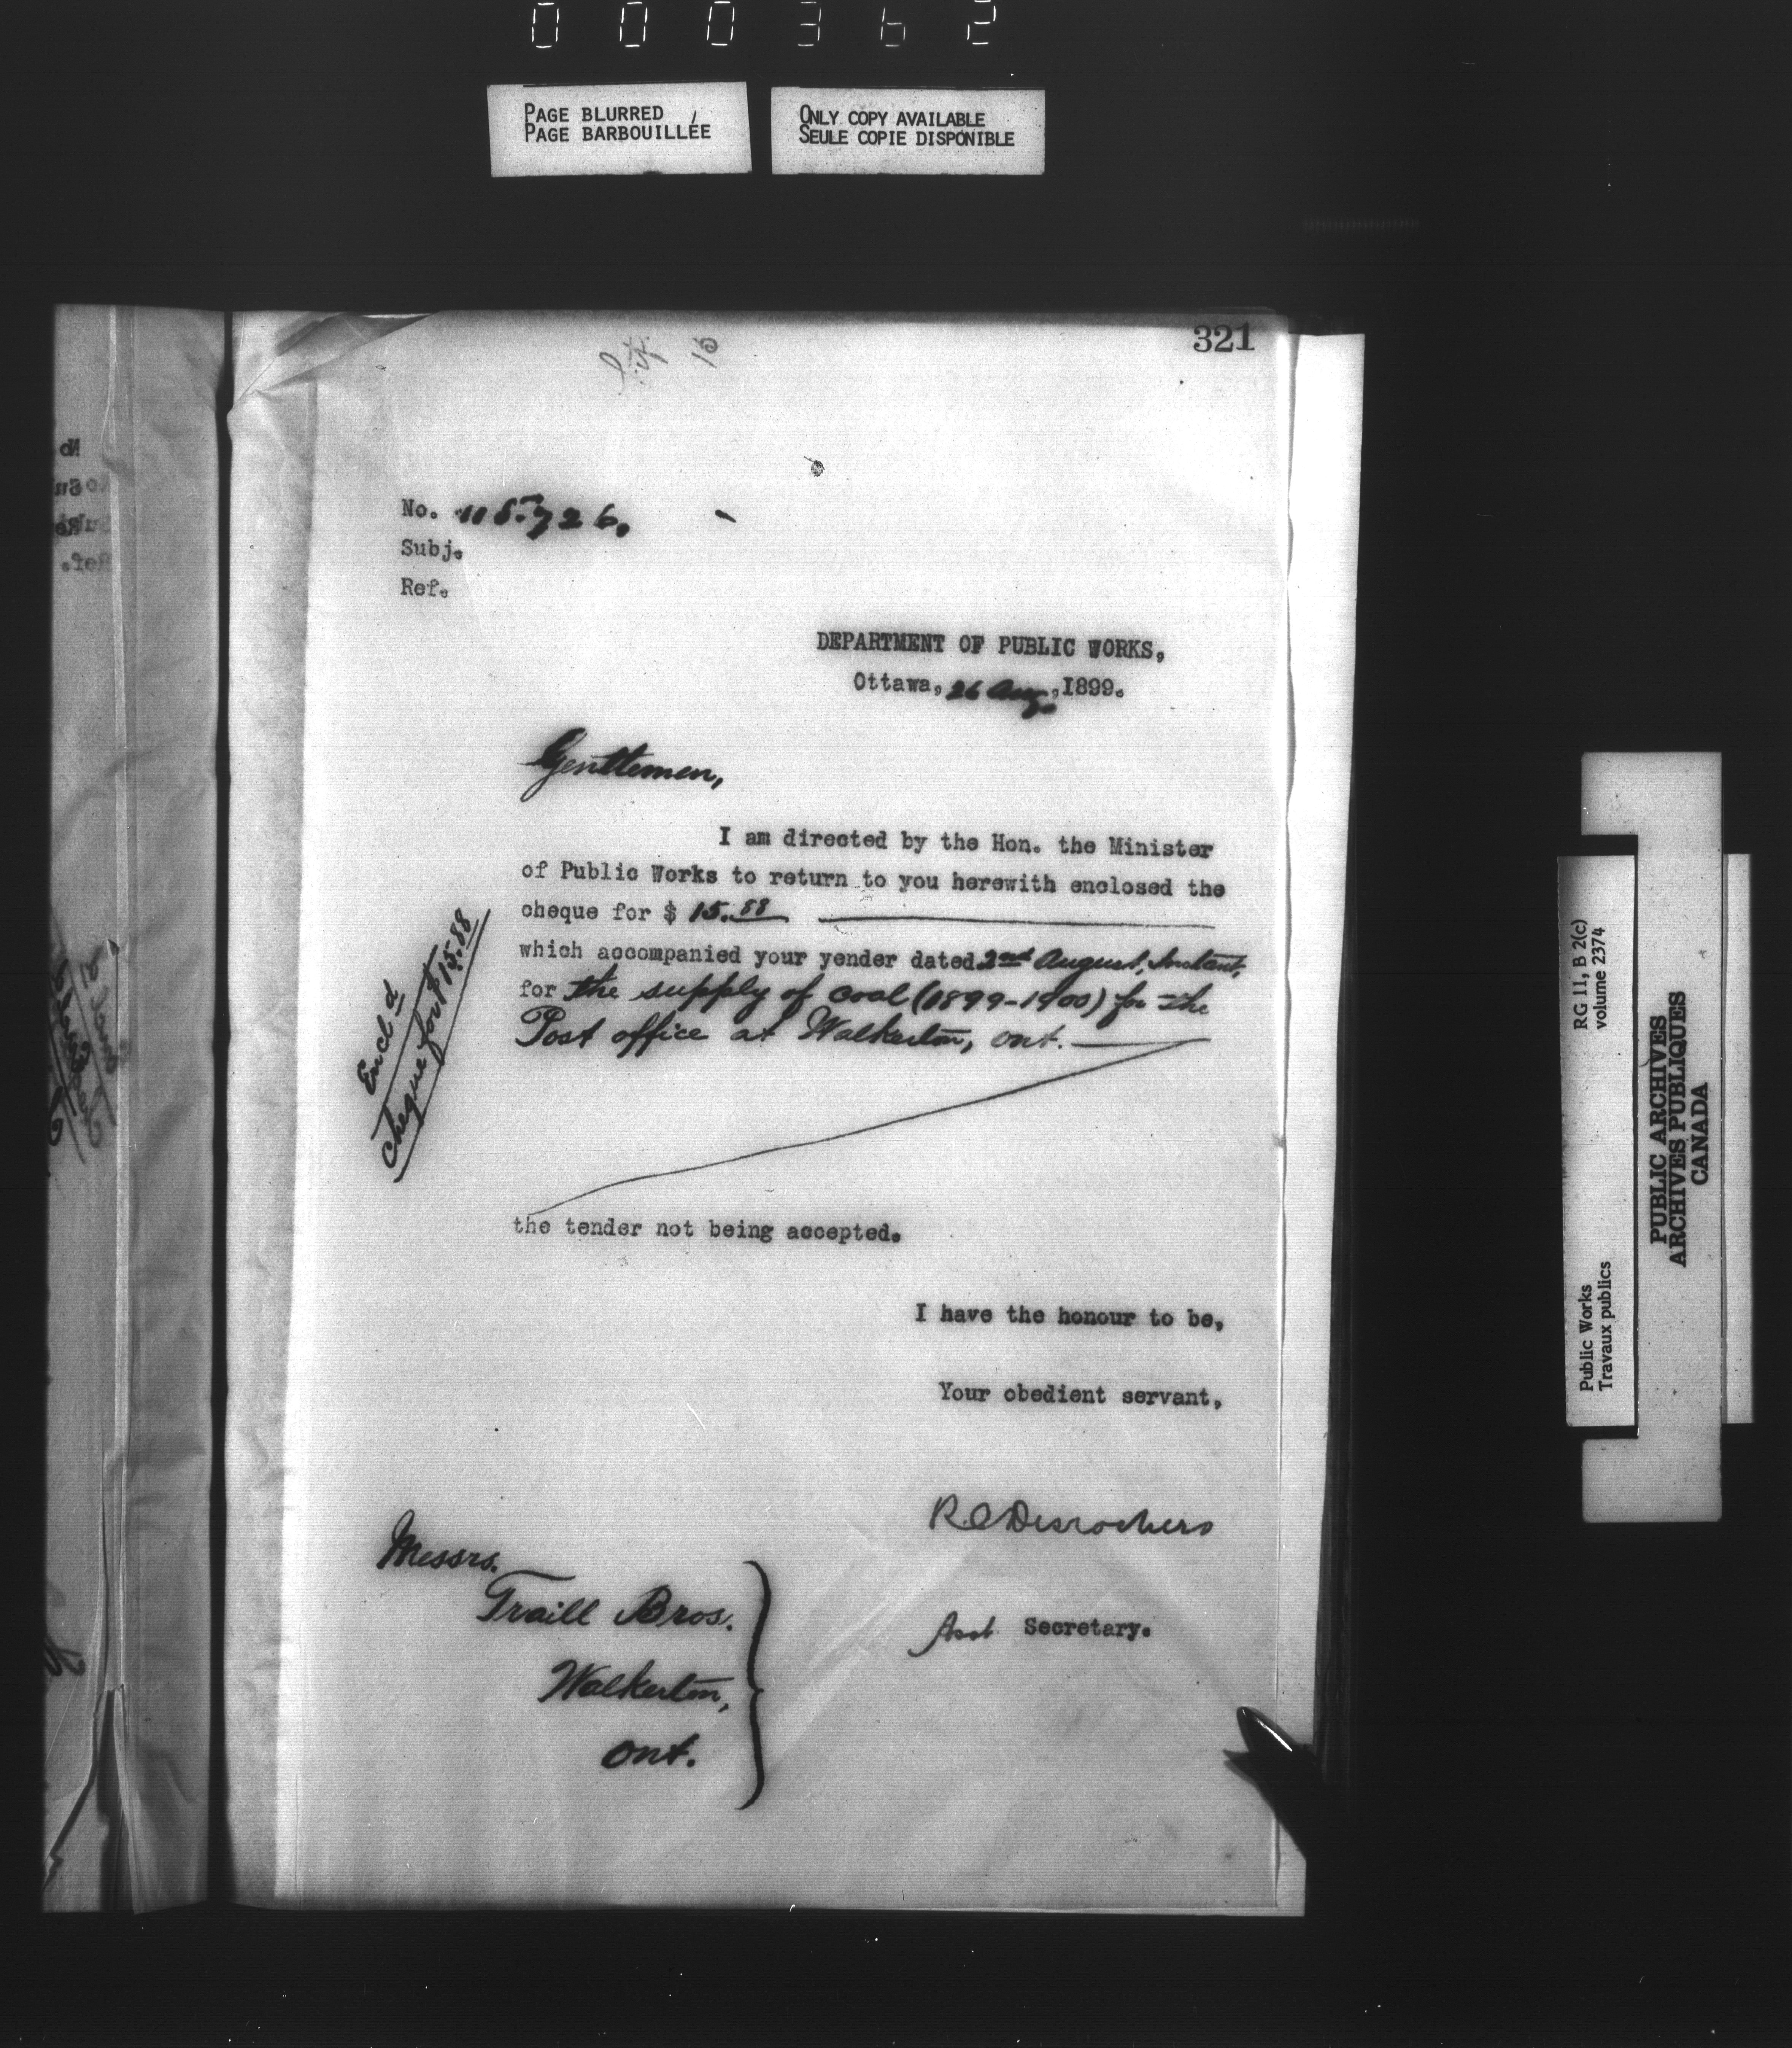 000362
PAGE BLURRED
PAGE BARBOUILLÉE
ONLY COPY AVAILABLE
SEULE COPIE DISPONIBLE
321
No. 115.726.
Subj.
Ref.
DEPARTMENT OF PUBLIC WORKS,
Ottawa, 26 Aug., 1899.
Gentlemen,
I am directed by the Hon. the Minister
of Public Works to return to you herewith enclosed the
cheque for $ 15.88
which accompanied your yender dated 2nd August, Instant,
for the supply of coal (1899-1900) for the
Post office at Walkerton, Ont.
Encl d
Cheque for $15.88
the tender not being accepted.
I have the honour to be,
Your obedient servant,
RC Desrochers
Asst Secretary.
Messrs.
Traill Bros.
Walkerton,
Ont.
RG 11, B 2(c)
volume 2374
Public Works
Travaux publics
PUBLIC ARCHIVES
ARCHIVES PUBLIQUES
CANADA